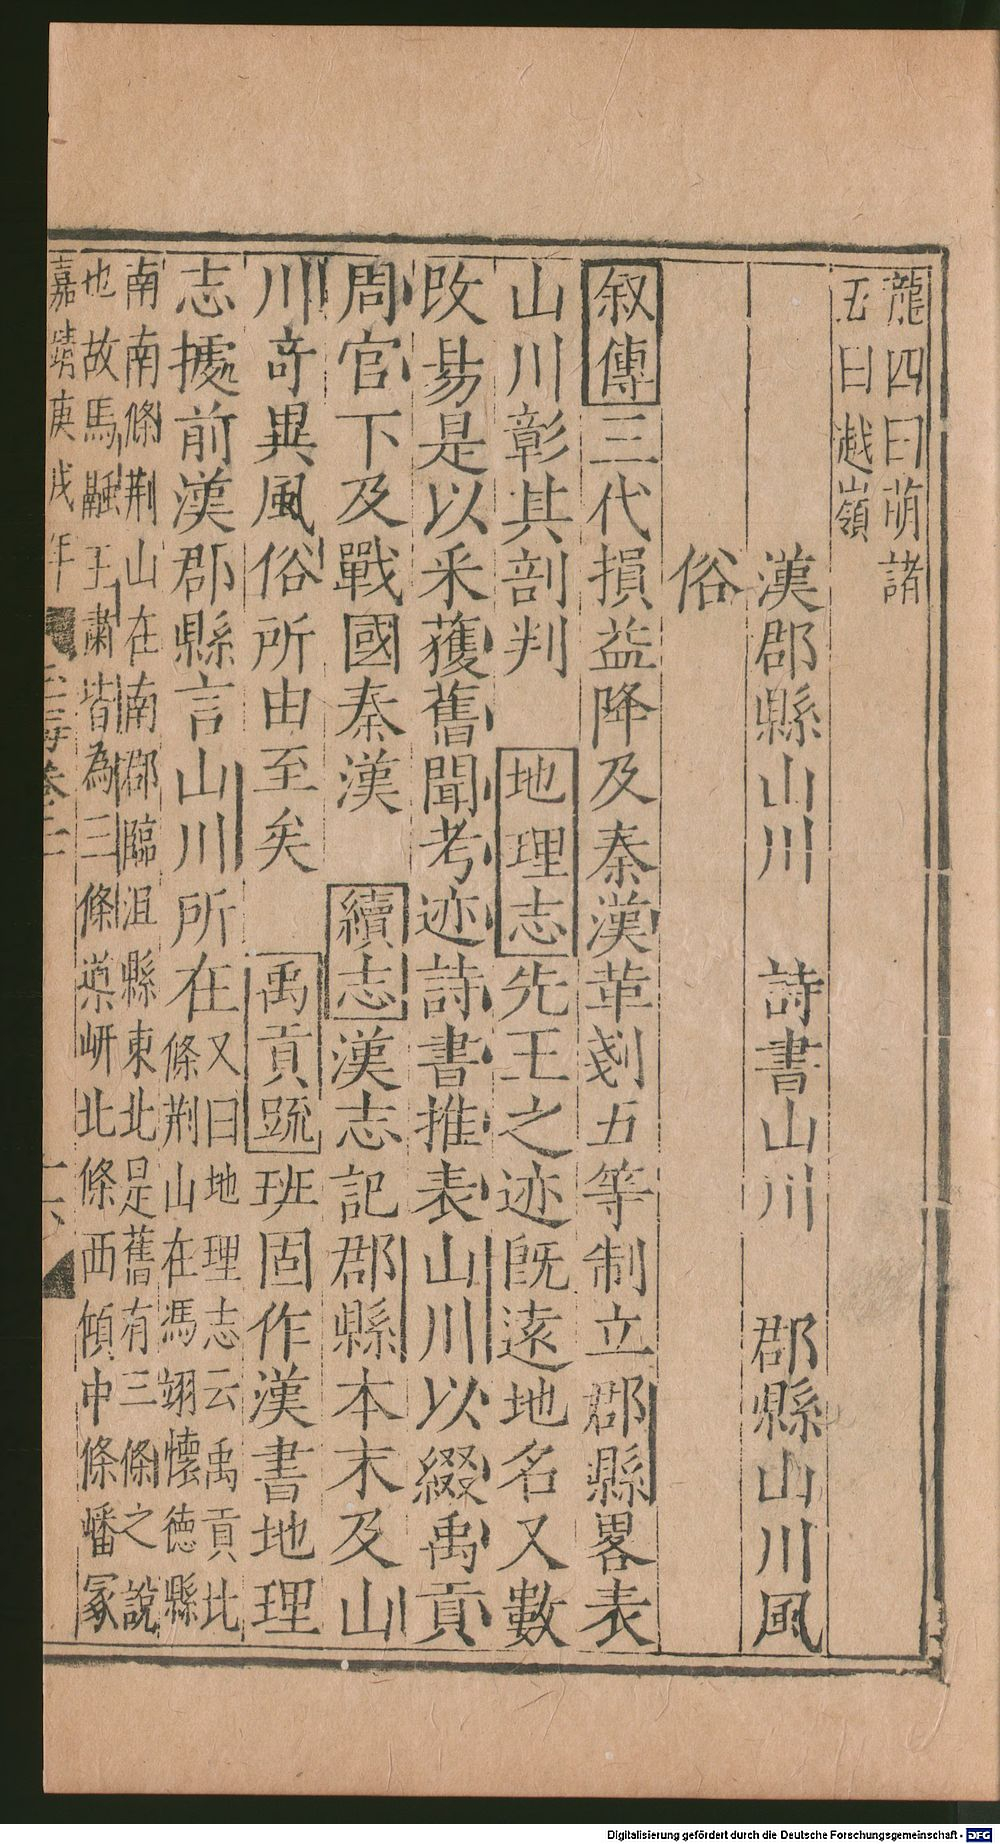 龍四曰萌諸
五曰越嶺
漢郡縣山川 詩書山川 郡縣山川風
俗
叙傳三代損益降及秦漢革剗五等制立郡縣畧表
山川彰其剖判 地理志先王之迹旣遠地名又數
改易是以采獲舊聞考迹詩書推表山川以綴禹貢
周官下及戰國秦漢 續志漢志記郡縣本末及山
川竒異風俗所由至矣 禹貢䟽班固作漢書地理
志據前漢郡縣言山川所在
又曰地理志云禹貢北
條荆山在馮翊懷德縣
南南條荆山在南郡臨沮縣東北是舊有三條之說
也故馬融王肅皆為三條導岍北條西傾中條嶓冢
嘉靖庚戌年 玉海卷二十 十六
Digitalisierung gefördert durch die Deutsche Forschungsgemeinschaft - DFG